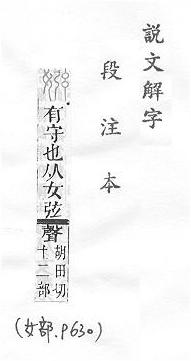 說文解字
段注本
有守也从女弦聲
胡田切
十二部
(女部.P630)